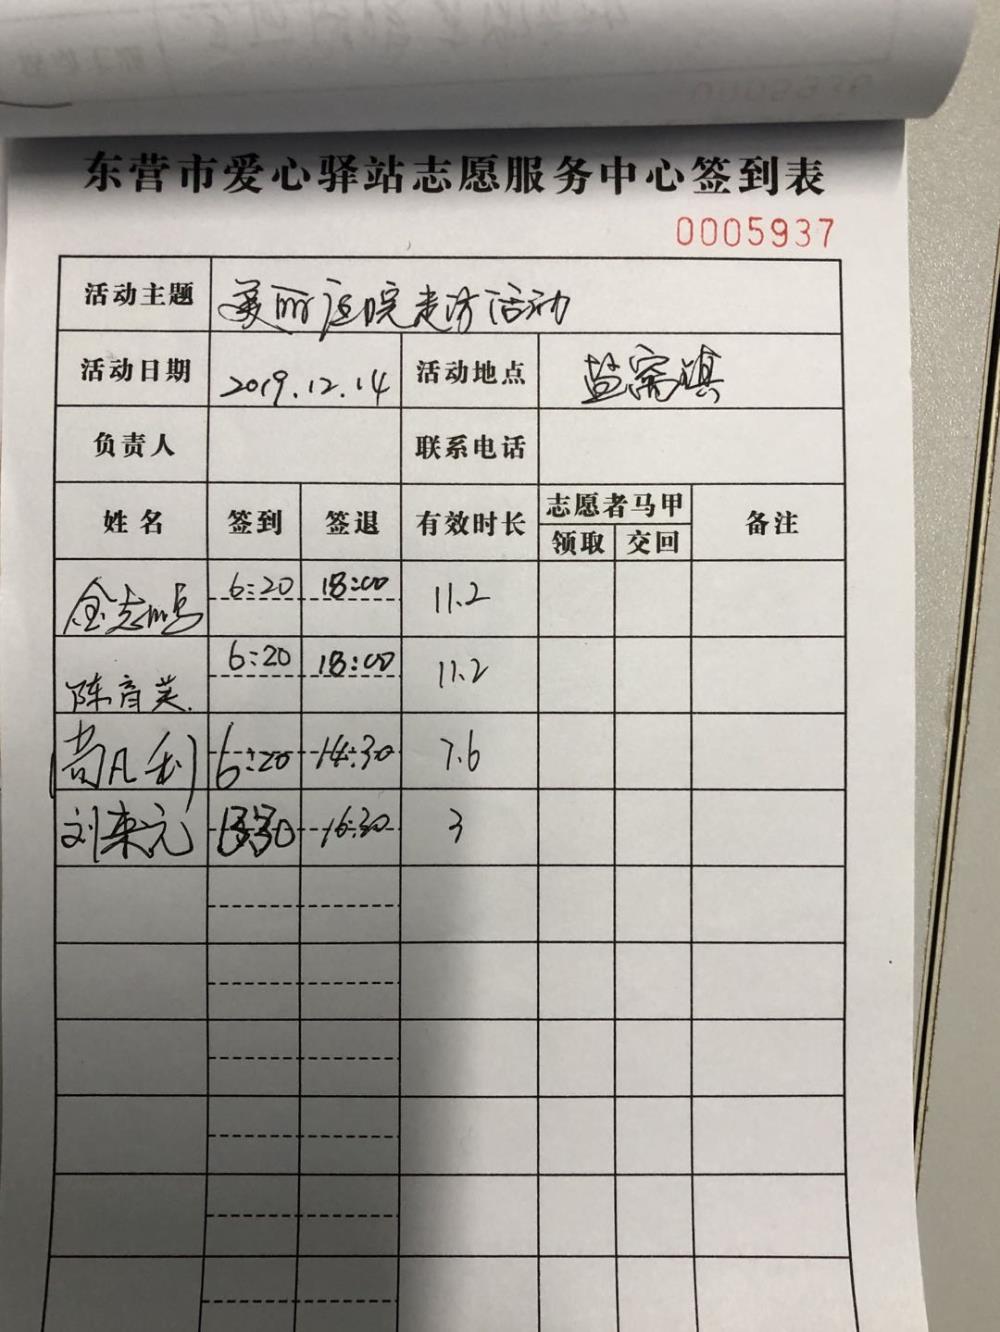 东营市爱心驿站志愿服务中心签到表
0005937
活动主题 美丽庭院走访活动
活动日期 2019.12.14 活动地点 盐窝镇
负责人 联系电话
姓名 签到 签退 有效时长 志愿者马甲 备注
领取 交回
6:20 18:00 11.2
陈育英 6:20 18:00 11.2
尚凡利 6:20 14:30 7.6
刘来元 16:30 3